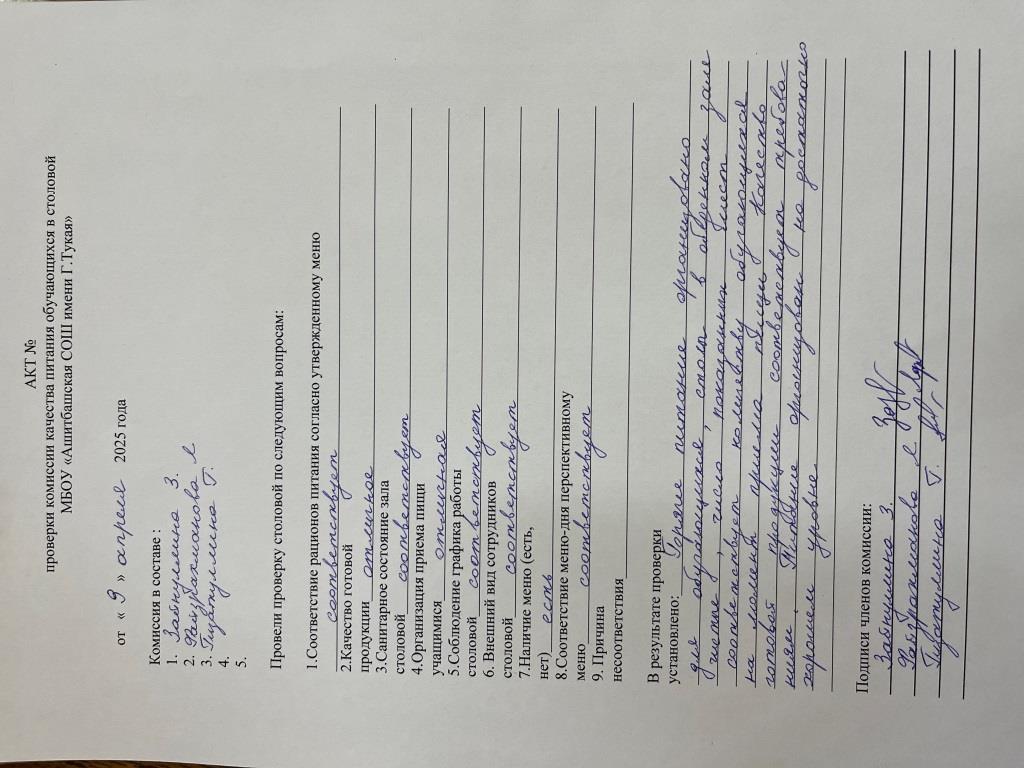 АКТ №
проверки комиссии качества питания обучающихся в столовой
МБОУ «Ашитбашская СОШ имени Г.Тукая»
от « 9 » апреля 2025 года
Комиссия в составе :
1. Забнулина З.
2. Файзрахманова Л
3. Гиззатуллина Г.
4.
5.
Провели проверку столовой по следующим вопросам:
1.Соответствие рационов питания согласно утвержденному меню
соответствует
2.Качество готовой
продукции отличное
3.Санитарное состояние зала
столовой соответствует
4.Организация приема пищи
учащимися отличная
5.Соблюдение графика работы
столовой соответствует
6. Внешний вид сотрудников
столовой соответствует
7.Наличие меню (есть,
нет) есть
8.Соответствие меню-дня перспективному
меню соответствует
9. Причина
несоответствия
В результате проверки
установлено: Горячее питание организовано
для обучающихся, в обеденном зале
чистые, число посадочных мест
соответствует количеству обучающихся
на момент приема пищи. Качество
готовой продукции соответствует требова-
ниям. Питание организовано на достаточно
хорошем уровне
Подписи членов комиссии:
Забнулина З.
Файзрахманова Л
Г.